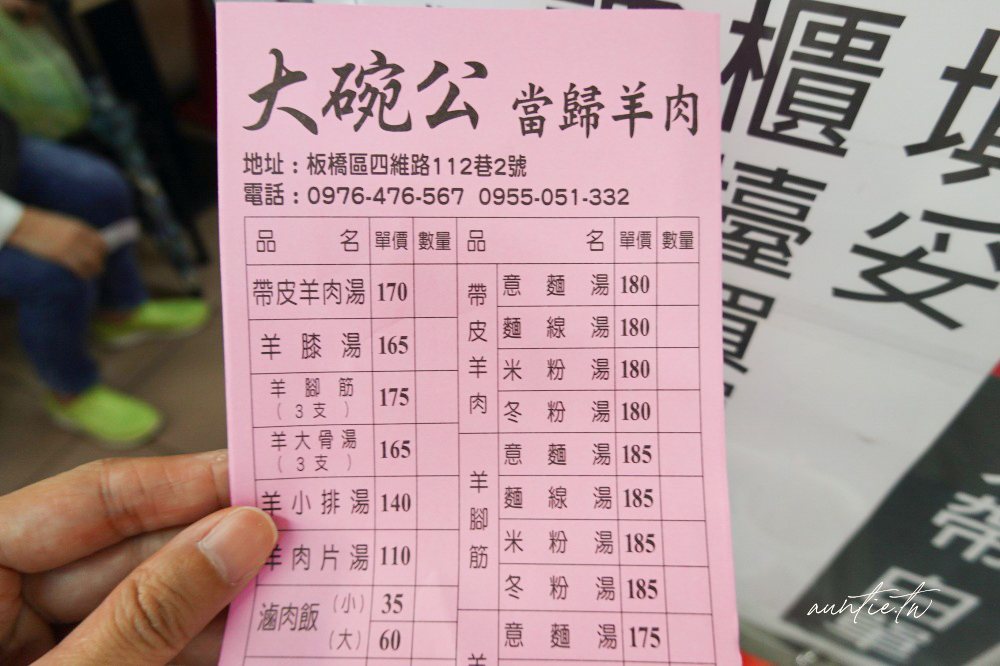 大碗公 當歸羊肉
地址：板橋區四維路112巷2號
電話：0976-476-567 0955-051-332
品名 單價 數量 品名 單價 數量
帶皮羊肉湯 170
羊膝湯 165
羊腳筋（3支） 175
羊大骨湯（3支） 165
羊小排湯 140
羊肉片湯 110
滷肉飯 （小） 35
（大） 60
帶皮羊肉
意麵湯 180
麵線湯 180
米粉湯 180
冬粉湯 180
羊腳筋
意麵湯 185
麵線湯 185
米粉湯 185
冬粉湯 185
羊
意麵湯 175
櫃 填
臺 妥
auntie.tw